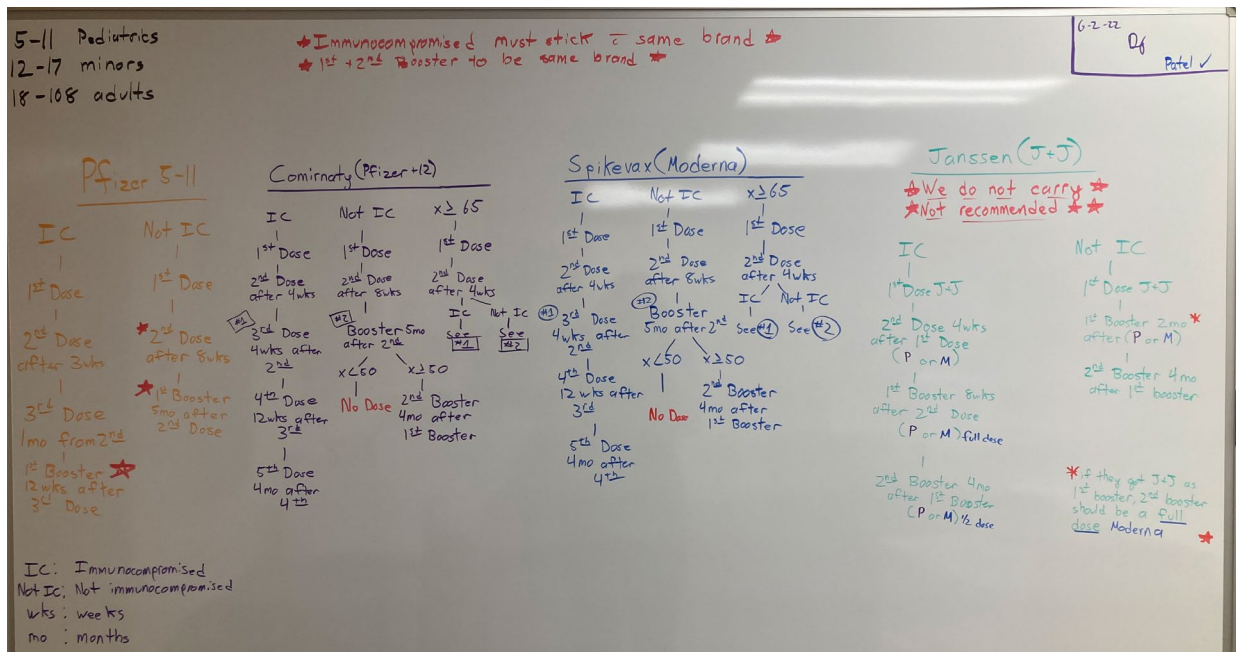 5-11 Pediatrics
12-17 minors
18-108 adults
★Immunocompromised must stick c̄ same brand★
★1st + 2nd Booster to be same brand★
6-2-22
Patel ✓
Pfizer 5-11
IC
1st Dose
2nd Dose
after 3wks
3rd Dose
1mo from 2nd
1st Booster ★
12 wks after
3rd Dose
Not IC
1st Dose
★2nd Dose
after 8wks
★1st Booster
5mo after
2nd Dose
Comirnaty (Pfizer +12)
IC
1st Dose
2nd Dose
after 4wks
#1
3rd Dose
4wks after
2nd
4th Dose
12wks after
3rd
5th Dose
4mo after
4th
Not IC
1st Dose
2nd Dose
after 8wks
#2
Booster 5mo
after 2nd
x<50
No Dose
x≥50
2nd Booster
4mo after
1st Booster
x≥65
1st Dose
2nd Dose
after 4wks
IC
See
#1
Not IC
See
#2
Spikevax (Moderna)
IC
1st Dose
2nd Dose
after 4wks
#1
3rd Dose
4wks after
2nd
4th Dose
12 wks after
3rd
5th Dose
4mo after
4th
Not IC
1st Dose
2nd Dose
after 8wks
#2
Booster
5mo after 2nd
x<50
No Dose
x≥50
2nd Booster
4mo after
1st Booster
x≥65
1st Dose
2nd Dose
after 4wks
IC
See #1
Not IC
See #2
Janssen (J+J)
★We do not carry★
★Not recommended★★
IC
1st Dose J+J
2nd Dose 4wks
after 1st Dose
(P or M)
1st Booster 8wks
after 2nd Dose
(P or M) full dose
2nd Booster 4mo
after 1st Booster
(P or M) 1/2 dose
Not IC
1st Dose J+J
1st Booster 2mo*
after (P or M)
2nd Booster 4mo
after 1st booster
*if they got J+J as
1st booster, 2nd booster
should be a full
dose Moderna ★
IC: Immunocompromised
Not Ic: Not immunocompromised
wks: weeks
mo: months